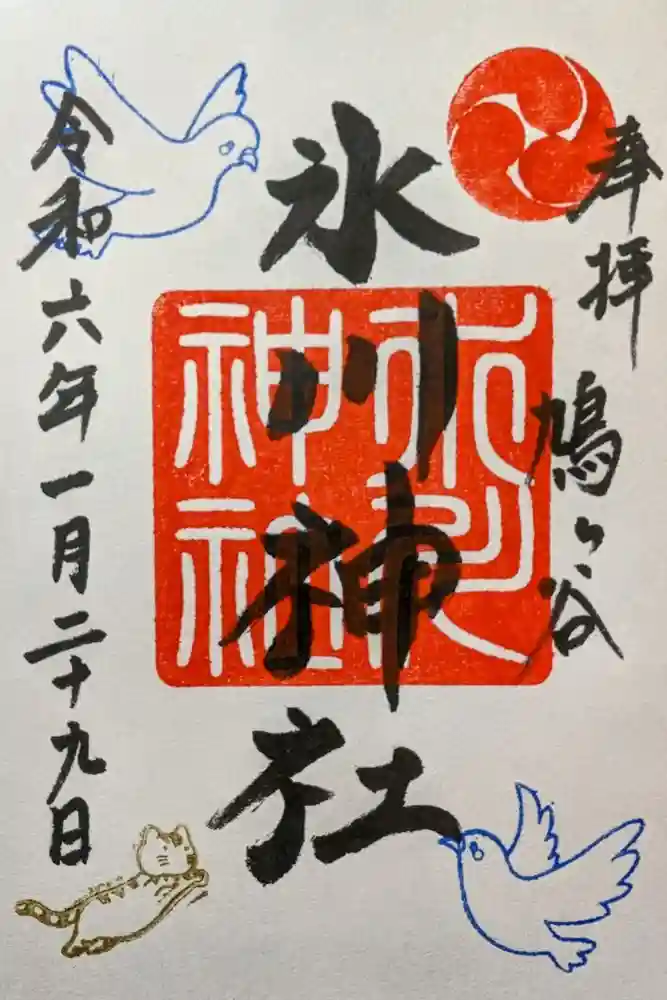 奉拝
鳩ヶ谷
氷川神社
氷川神社
令和六年一月二十九日